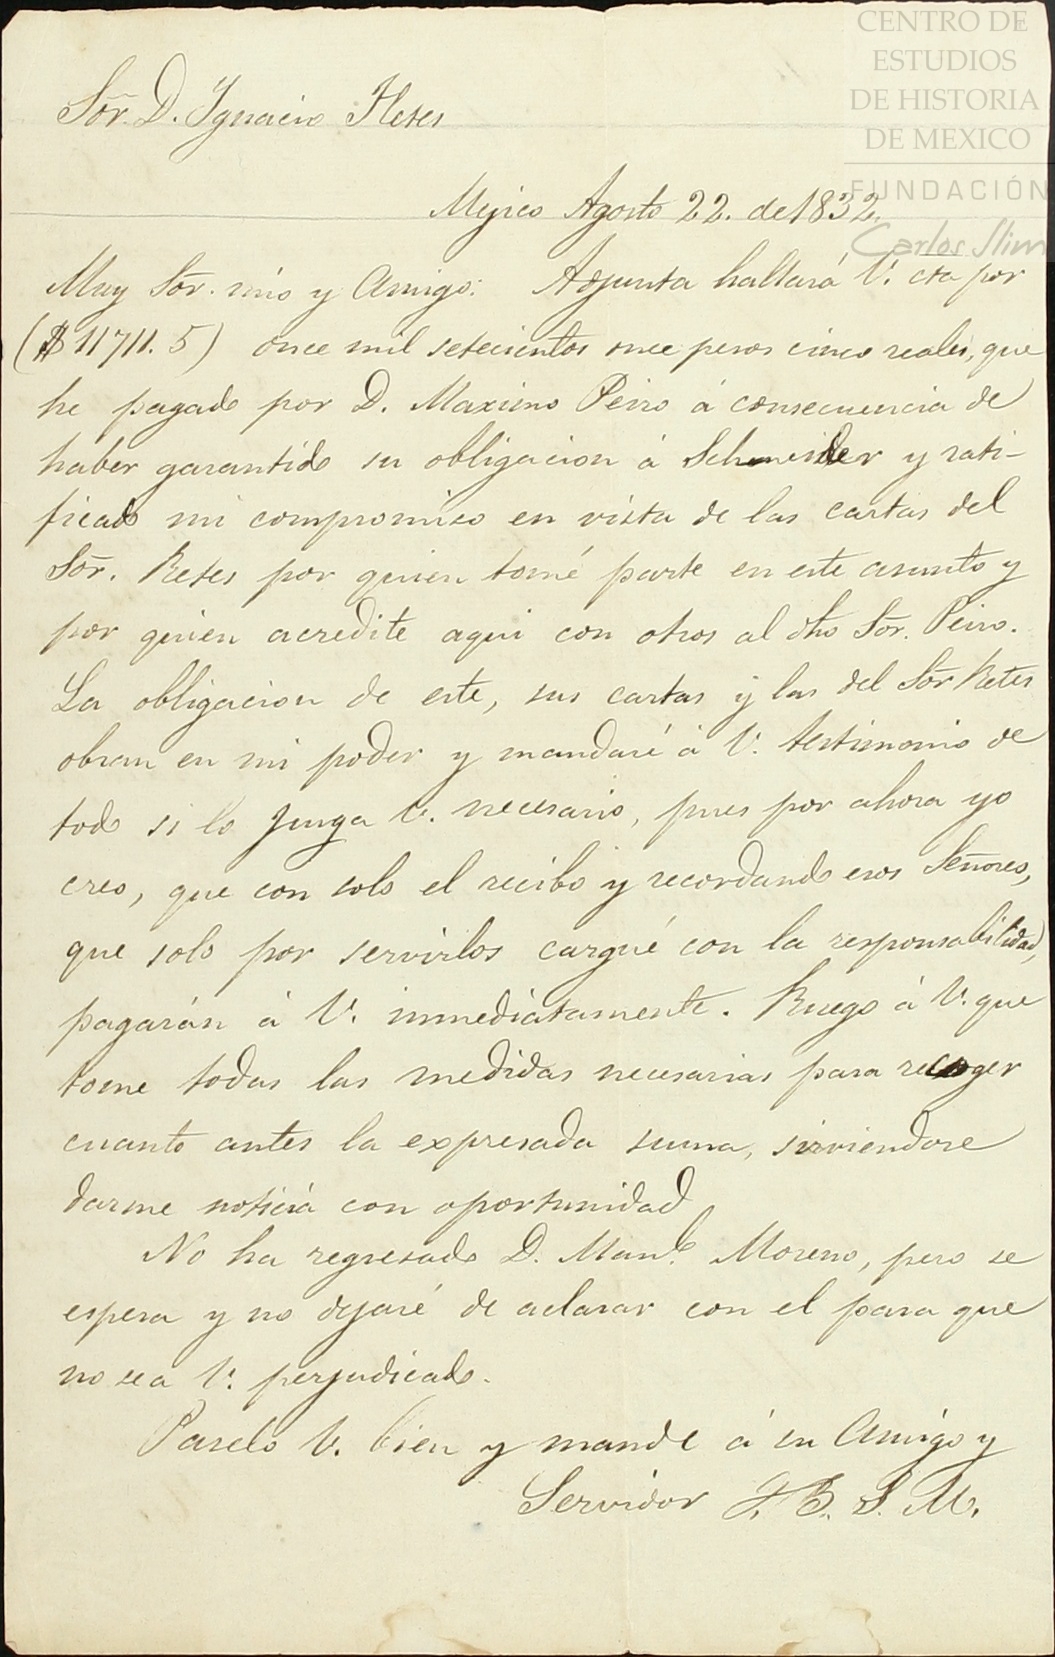 CENTRO DE
ESTUDIOS
DE HISTORIA
DE MEXICO
FUNDACIÓN
Carlos Slim
Sor. D. Ygnacio Fletes
Mejico Agosto 22. de 1832.
Muy Sor. mio y Amigo: Adjunta hallará V. cta por
($11711. 5) once mil setecientos once pesos cinco reales, que
he pagado por D. Maximo Peiro á consecuencia de
haber garantido su obligacion á Schneider y rati-
ficado mi compromiso en vista de las cartas del
Sor. Retes por quien tomé parte en este asunto y
por quien acredite aqui con otros al dho Sor. Peiro.
La obligacion de este, sus cartas y las del Sor Retes
obran en mi poder y mandaré á V. testimonio de
todo si lo juzga V. necesario, pues por ahora yo
creo, que con solo el recibo y recordando esos Señores,
que solo por servirlos cargué con la responsabilidad,
pagarán á V. inmediatamente. Ruego á V. que
tome todas las medidas necesarias para recoger
cuanto antes la expresada suma, sirviendose
darme noticia con oportunidad
No ha regresado D. Manl. Moreno, pero se
espera y no dejaré de aclarar con el para que
no sea V. perjudicado.
Paselo V. bien y mande á su Amigo y
Servidor Q. B. S. M.